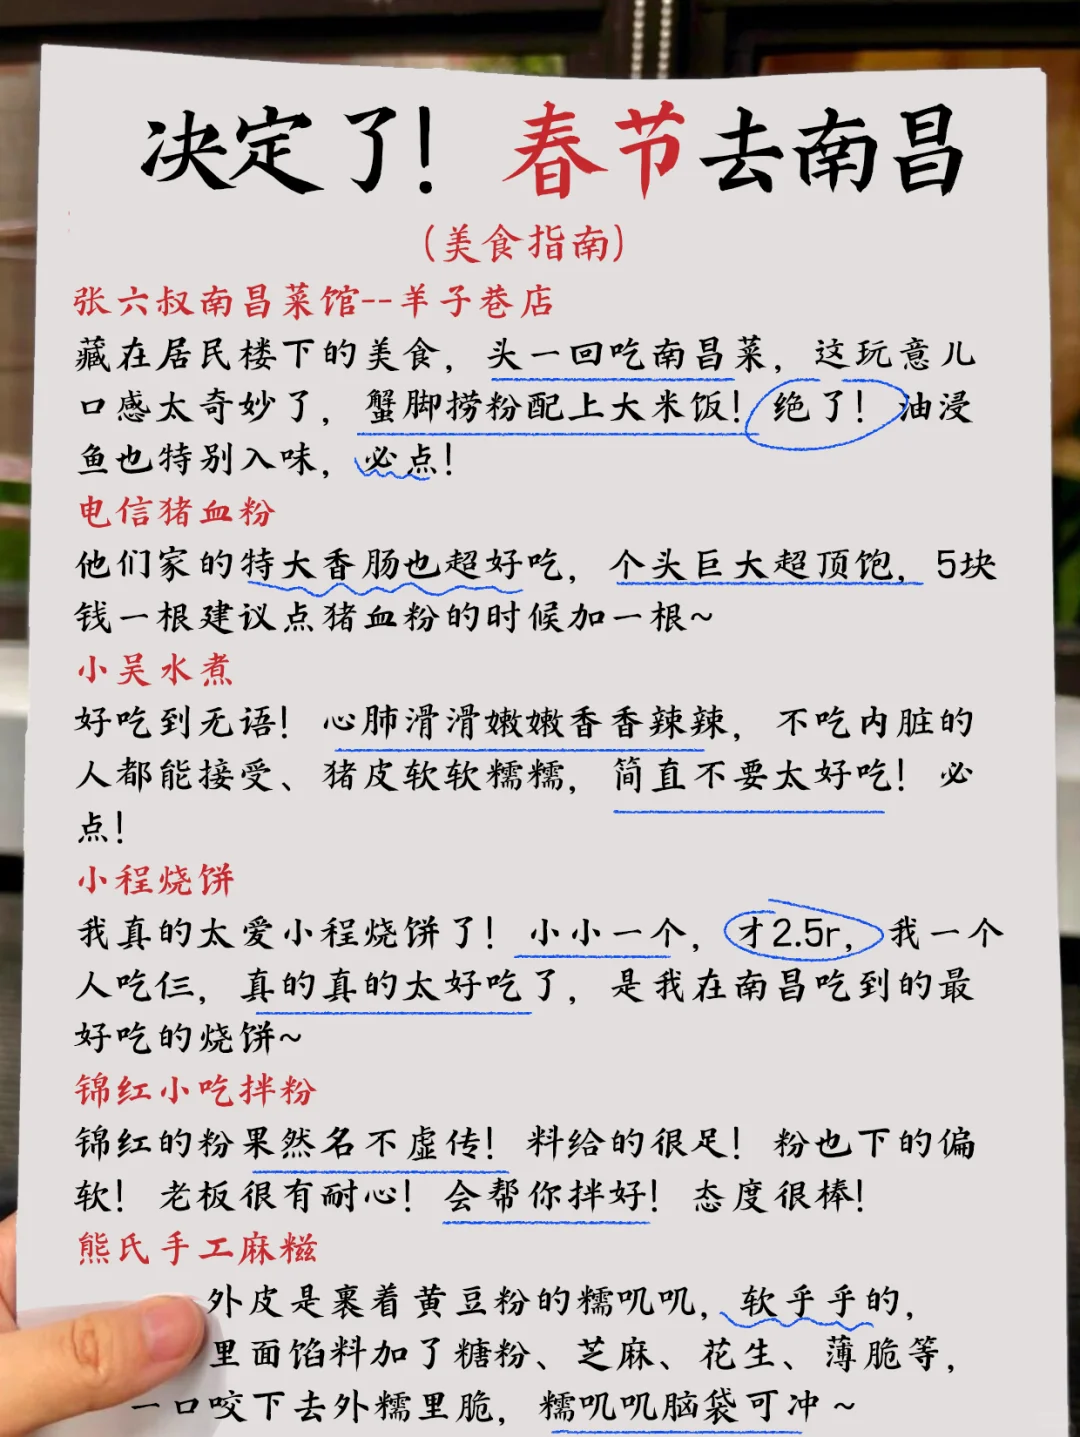 决定了！春节去南昌
（美食指南）
张六叔南昌菜馆--羊子巷店
藏在居民楼下的美食，头一回吃南昌菜，这玩意儿
口感太奇妙了，蟹脚捞粉配上大米饭！绝了！油浸
鱼也特别入味，必点！
电信猪血粉
他们家的特大香肠也超好吃，个头巨大超顶饱，5块
钱一根建议点猪血粉的时候加一根~
小吴水煮
好吃到无语！心肺滑滑嫩嫩香香辣辣，不吃内脏的
人都能接受、猪皮软软糯糯，简直不要太好吃！必
点！
小程烧饼
我真的太爱小程烧饼了！小小一个，才2.5r，我一个
人吃仨，真的真的太好吃了，是我在南昌吃到的最
好吃的烧饼~
锦红小吃拌粉
锦红的粉果然名不虚传！料给的很足！粉也下的偏
软！老板很有耐心！会帮你拌好！态度很棒！
熊氏手工麻糍
外皮是裹着黄豆粉的糯叽叽，软乎乎的，
里面馅料加了糖粉、芝麻、花生、薄脆等，
一口咬下去外糯里脆，糯叽叽脑袋可冲~